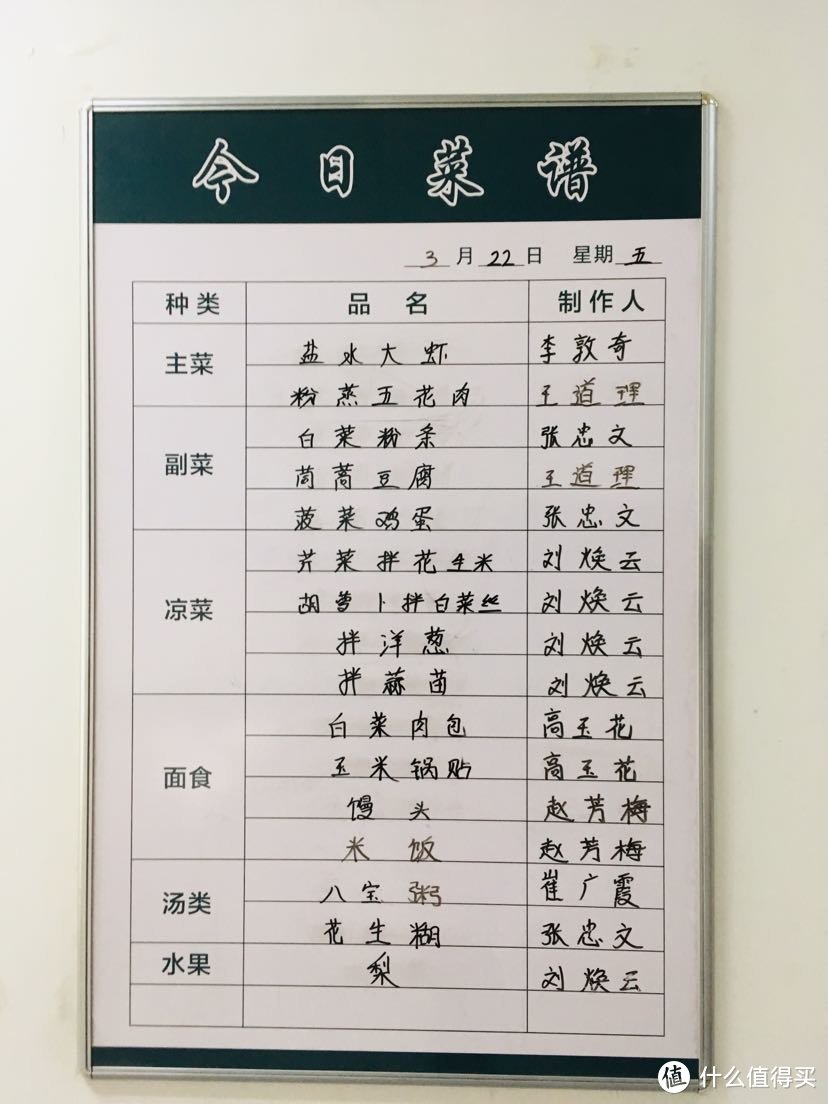 今日菜谱
3月22日 星期五
种类 品名 制作人
主菜 盐水大虾 李敦奇
粉蒸五花肉 王道理
副菜 白菜粉条 张忠文
茼蒿豆腐 王道理
菠菜鸡蛋 张忠文
凉菜 芹菜拌花生米 刘焕云
胡萝卜拌白菜丝 刘焕云
拌洋葱 刘焕云
拌蒜苗 刘焕云
面食 白菜肉包 高玉花
玉米锅贴 高玉花
馒头 赵芳梅
米饭 赵芳梅
汤类 八宝粥 崔广霞
花生糊 张忠文
水果 梨 刘焕云
值 什么值得买